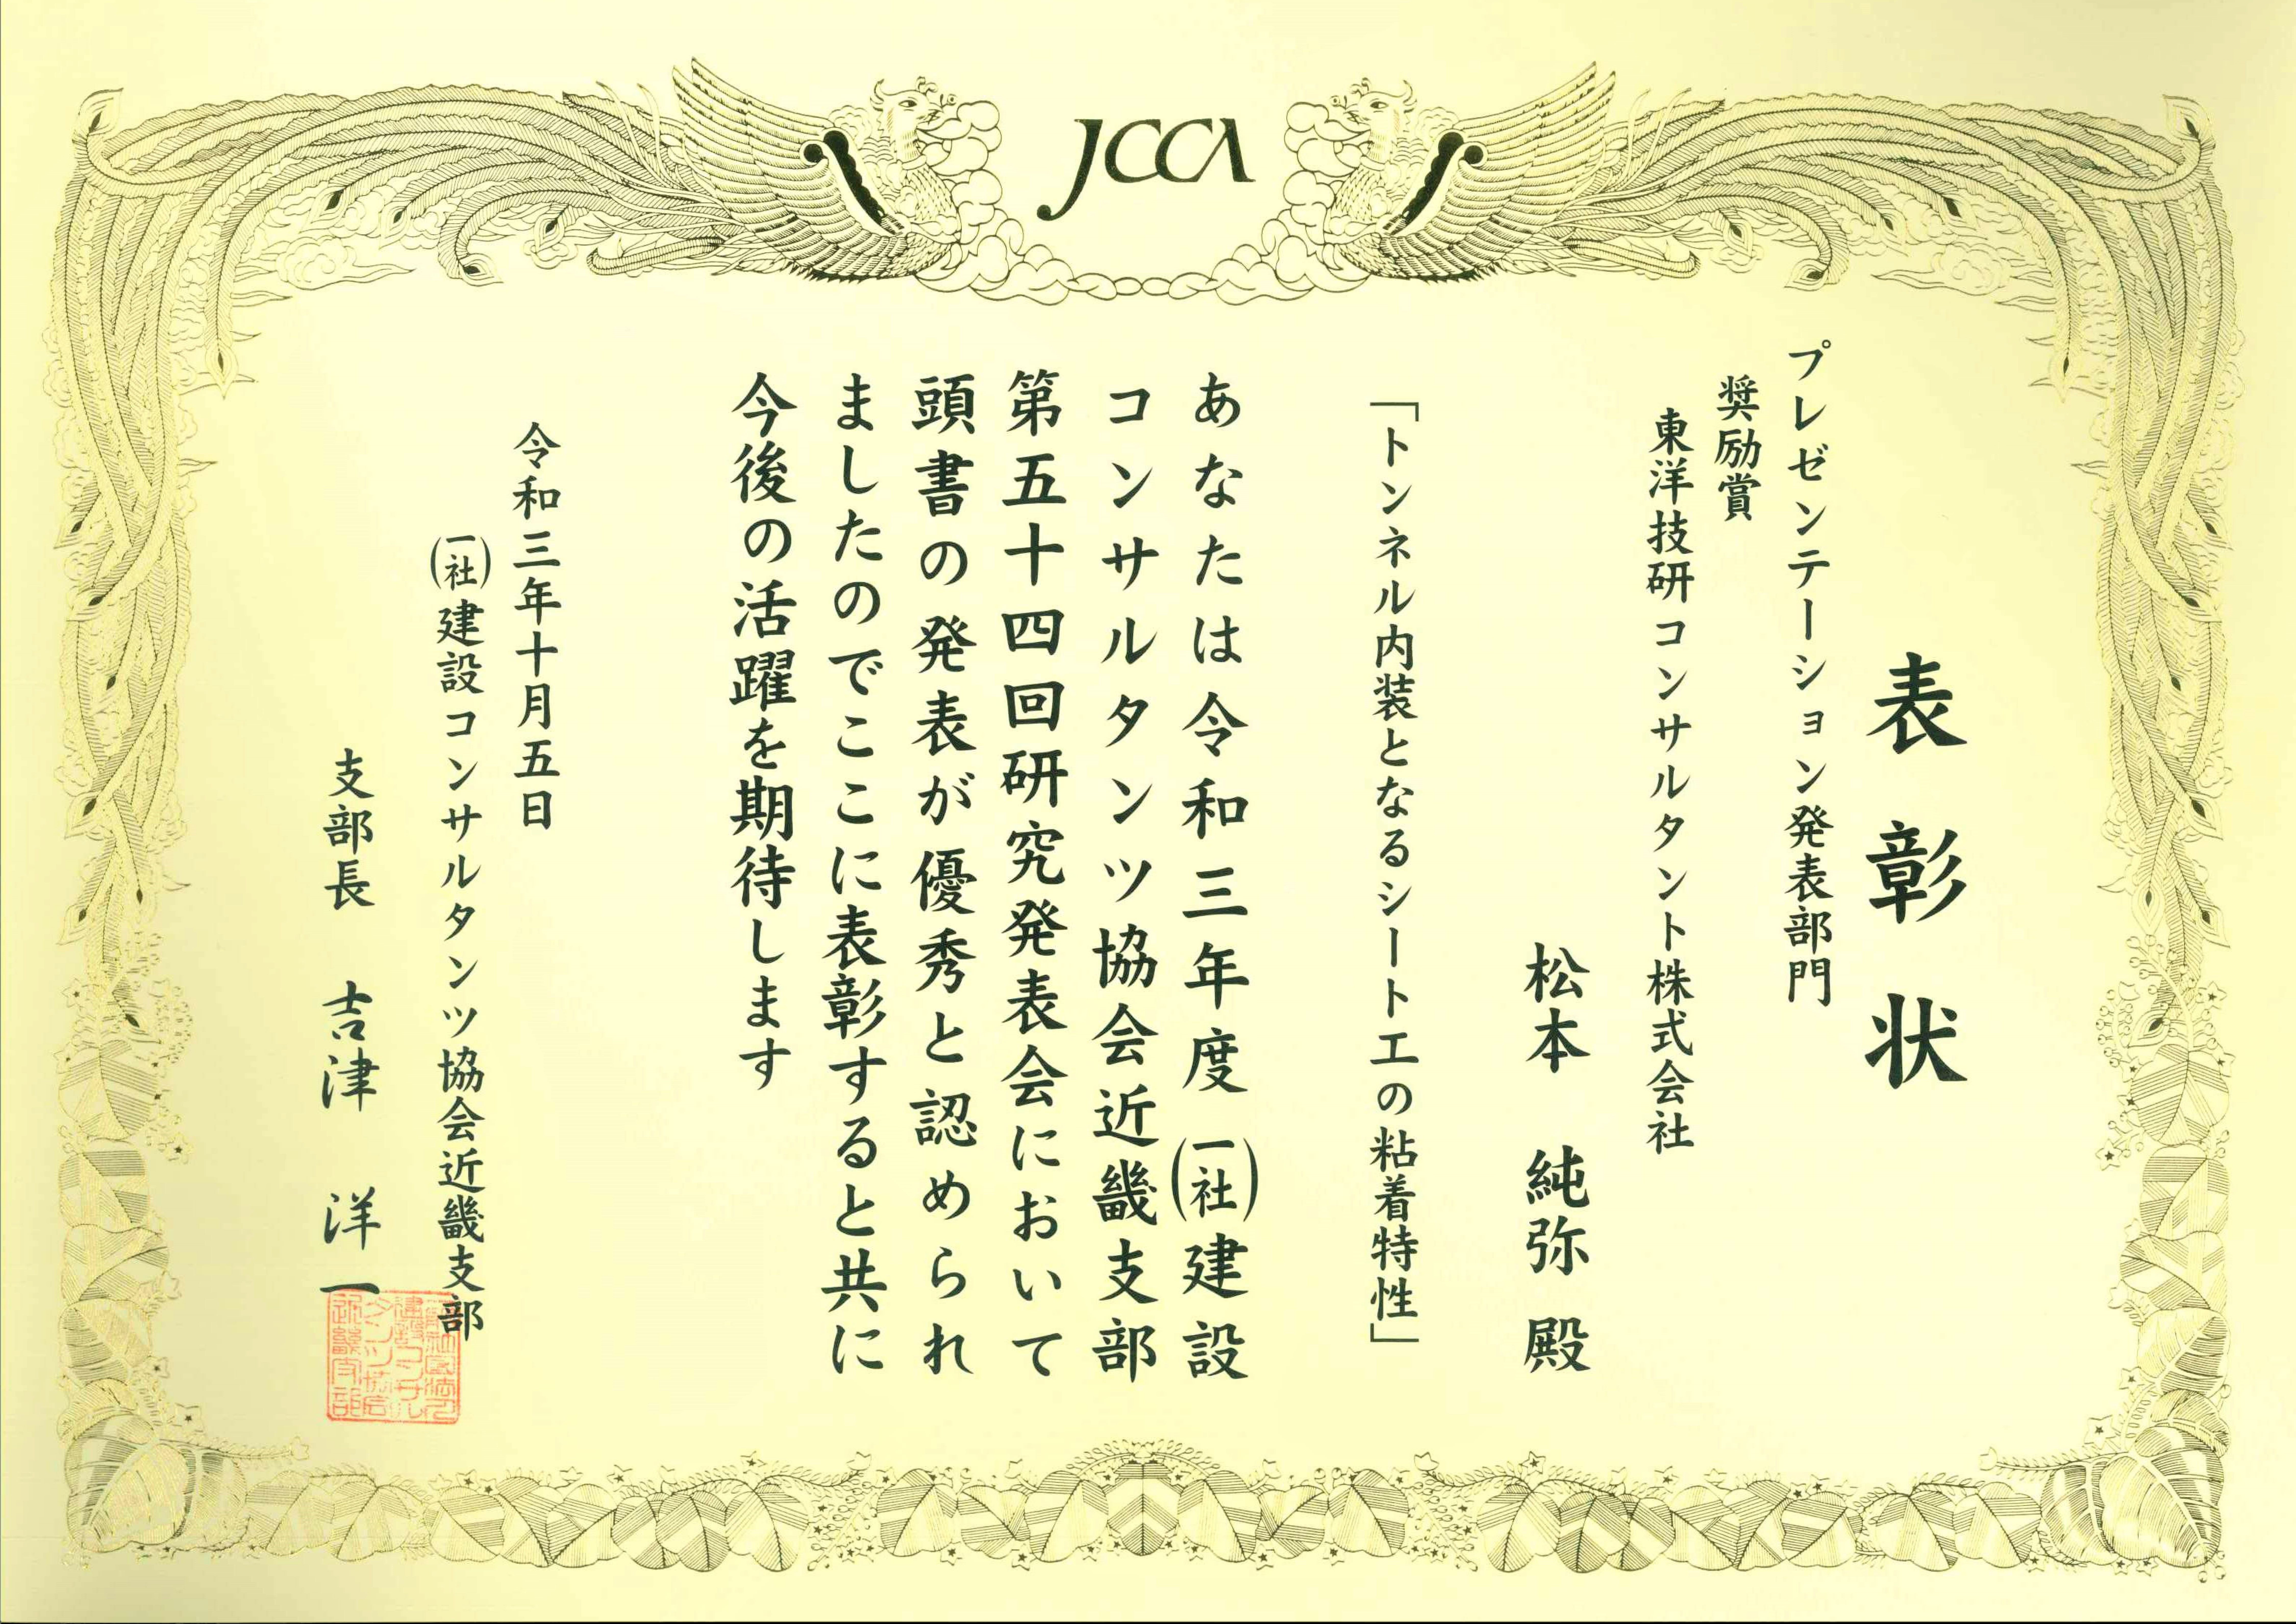 JCCA
表彰状
プレゼンテーション発表部門
奨励賞
東洋技研コンサルタント株式会社
松本 純弥 殿
「トンネル内装となるシート工の粘着特性」
あなたは令和三年度(一社)建設
コンサルタンツ協会近畿支部
第五十四回研究発表会において
頭書の発表が優秀と認められ
ましたのでここに表彰すると共に
今後の活躍を期待します
令和三年十月五日
(一社)建設コンサルタンツ協会近畿支部
支部長 吉津 洋一